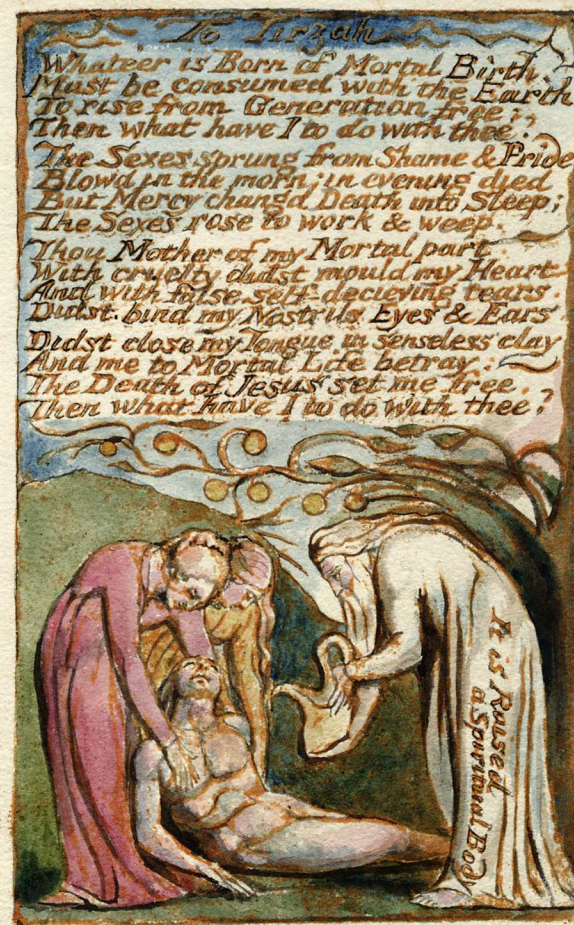 To Tirzah
Whate'er is Born of Mortal Birth,
Must be consumed with the Earth
To rise from Generation free;
Then what have I to do with thee?
The Sexes sprung from Shame & Pride
Blowd in the morn; in evening died
But Mercy changd Death into Sleep;
The Sexes rose to work & weep.
Thou Mother of my Mortal part.
With cruelty didst mould my Heart
And with false self-decieving tears.
Didst bind my Nostrils Eyes & Ears
Didst close my Tongue in senseless clay
And me to Mortal Life betray:
The Death of Jesus set me free.
Then what have I to do with thee?
It is Raised
a Spiritual Body